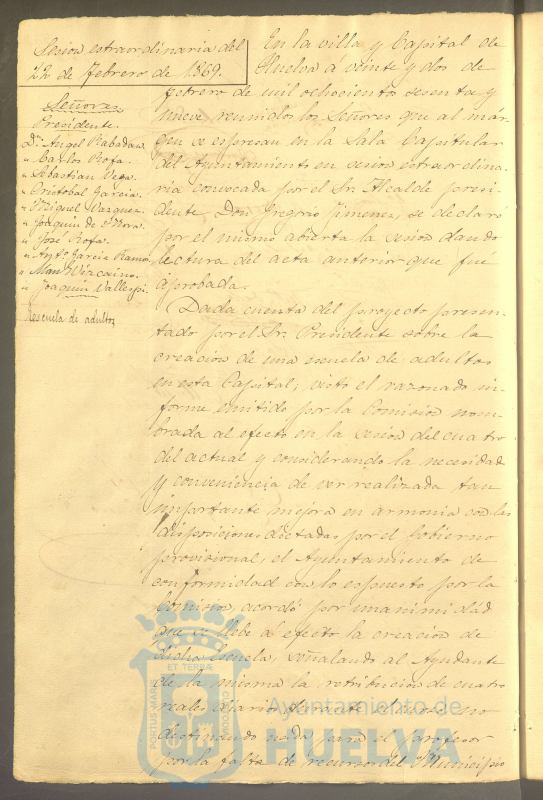 Sesion extraordinaria del
22 de Febrero de 1869.
Señores
Presidente.
D. Angel Rabadan
" Carlos Rofa.
" Sebastian Vega.
" Cristobal Garcia.
" Miguel Vazquez.
" Joaquin de Mora.
" José Rofa.
" Antº Garcia Ramos
" Manl Vizcaino.
" Joaquin Vallespi.
Escuela de adultos
En la villa y Capital de
Huelva á veinte y dos de
febrero de mil ochocientos sesenta y
nueve, reunidos los Señores que al már-
gen se espresan en la Sala Capitular
del Ayuntamiento en sesion extraordina-
ria convocada por el Sr. Alcalde presi-
dente, Don Gregorio Jimenez, se declaró
por el mismo abierta la sesion dando
lectura del acta anterior que fué
aprobada.
Dada cuenta del proyecto presen-
tado por el Sr. Presidente sobre la
creacion de una escuela de adultos
en esta Capital; visto el razonado in-
forme emitido por la Comision nom-
brada al efecto en la sesion del cuatro
del actual y considerando la necesidad
y conveniencia de ver realizada tan
importante mejora en armonia con las
disposiciones dictadas por el Gobierno
provisional, el Ayuntamiento de
conformidad con lo espuesto por la
Comision, acordó por unanimidad
que se llebe á efecto la creacion de
dicha escuela, señalando al Ayudante
de la misma la retribucion de cuatro
reales diarios durante el curso no
destinando nada para el profesor
por la falta de recursos del Municipio
PORTUS MARIS ET TERRÆ CUSTODIA
Ayuntamiento de
HUELVA